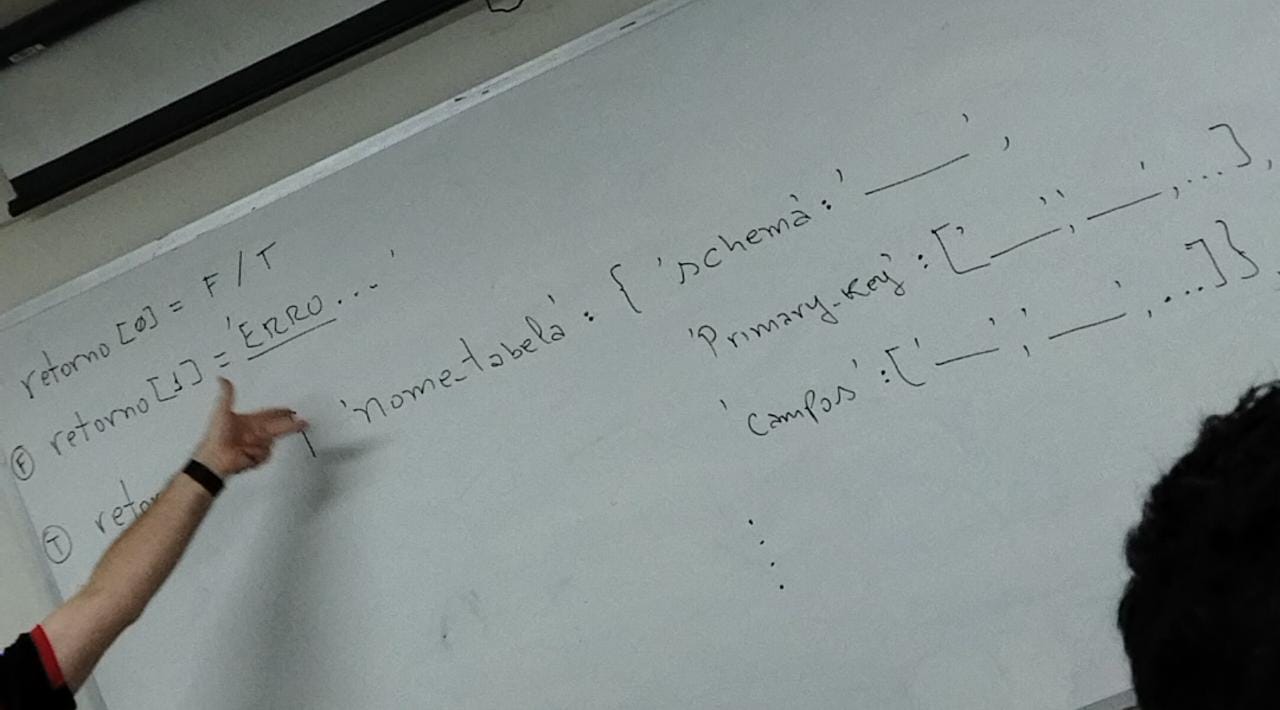 retorno[0] = F/T
Ⓕ retorno[1] = 'ERRO...'
Ⓣ { 'nome_tabela': { 'schema': '____',
'Primary-Key': ['____', '____', ...],
'campos': ['____', '____', ...]},